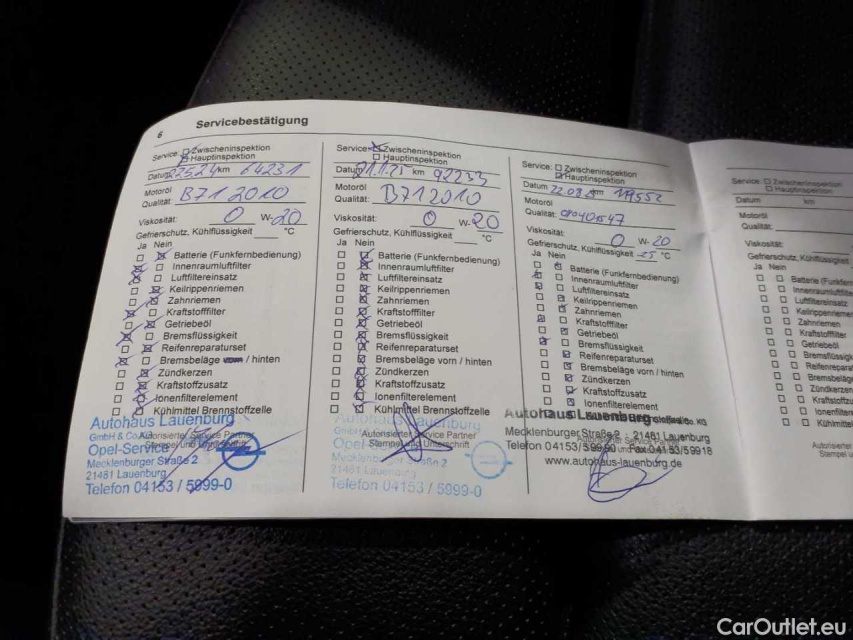 6
Servicebestätigung
Service: Zwischeninspektion
Hauptinspektion
Datum 22524 km 64231
Motoröl
Qualität: B71 2010
Viskosität: 0 W-20
Gefrierschutz, Kühlflüssigkeit °C
Ja Nein
Batterie (Funkfernbedienung)
Innenraumluftfilter
Luftfiltereinsatz
Keilrippenriemen
Zahnriemen
Kraftstofffilter
Getriebeöl
Bremsflüssigkeit
Reifenreparaturset
Bremsbeläge vorn / hinten
Zündkerzen
Kraftstoffzusatz
Ionenfilterelement
Kühlmittel Brennstoffzelle
Autorisierter Service Partner
Autohaus Lauenburg
GmbH & Co.KG
Opel-Service
Mecklenburger Straße 2
21481 Lauenburg
Telefon 04153 / 5999-0
Service: Zwischeninspektion
Hauptinspektion
Datum 21.1.25 km 92233
Motoröl
Qualität: B712010
Viskosität: 0 W-20
Gefrierschutz, Kühlflüssigkeit °C
Ja Nein
Batterie (Funkfernbedienung)
Innenraumluftfilter
Luftfiltereinsatz
Keilrippenriemen
Zahnriemen
Kraftstofffilter
Getriebeöl
Bremsflüssigkeit
Reifenreparaturset
Bremsbeläge vorn / hinten
Zündkerzen
Kraftstoffzusatz
Ionenfilterelement
Kühlmittel Brennstoffzelle
Autorisierter Service Partner
Stempel und Unterschrift
Autohaus Lauenburg
Opel
Mecklenburger Straße 2
21481 Lauenburg
Telefon 04153 / 5999-0
Service: Zwischeninspektion
Hauptinspektion
Datum 22.08 km
Motoröl
Qualität:
Viskosität: 0 W-20
Gefrierschutz, Kühlflüssigkeit -25 °C
Ja Nein
Batterie (Funkfernbedienung)
Innenraumluftfilter
Luftfiltereinsatz
Keilrippenriemen
Zahnriemen
Kraftstofffilter
Getriebeöl
Bremsflüssigkeit
Reifenreparaturset
Bremsbeläge vorn / hinten
Zündkerzen
Kraftstoffzusatz
Ionenfilterelement
Autohaus Lauenburg
Mecklenburger Straße 2 21481 Lauenburg
Telefon 04153/ Fax 04153/59918
www.autohaus-lauenburg.de
Service: Zwischeninspektion
Hauptinspektion
Datum km
Motoröl
Qualität:
Viskosität:
Gefrierschutz, Kühlflüssig
Ja Nein
Batterie (Funkfern
Innenraumluftfilter
Luftfiltereinsatz
Keilrippenriemen
Zahnriemen
Kraftstofffilter
Getriebeöl
Bremsflüssig
Reifenrepara
Bremsbeläg
Zündkerzen
Kraftstoffz
Ionenfilter
Kühlmittel
Autorisierter
Stempel u
CarOutlet.eu